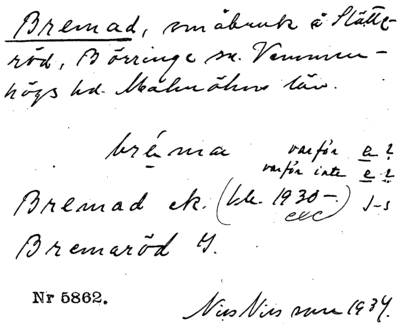 Bremad, småbruk å Slätte-
röd, Börringe sn. Vemmen-
högs hd. Malmöhus län.
bréma varför e?
varför inte e?
Bremad ek. (bl. 1930-. J-s
exc
Bremaröd J.
Nr 5862.
Nils Nilsson 1934.